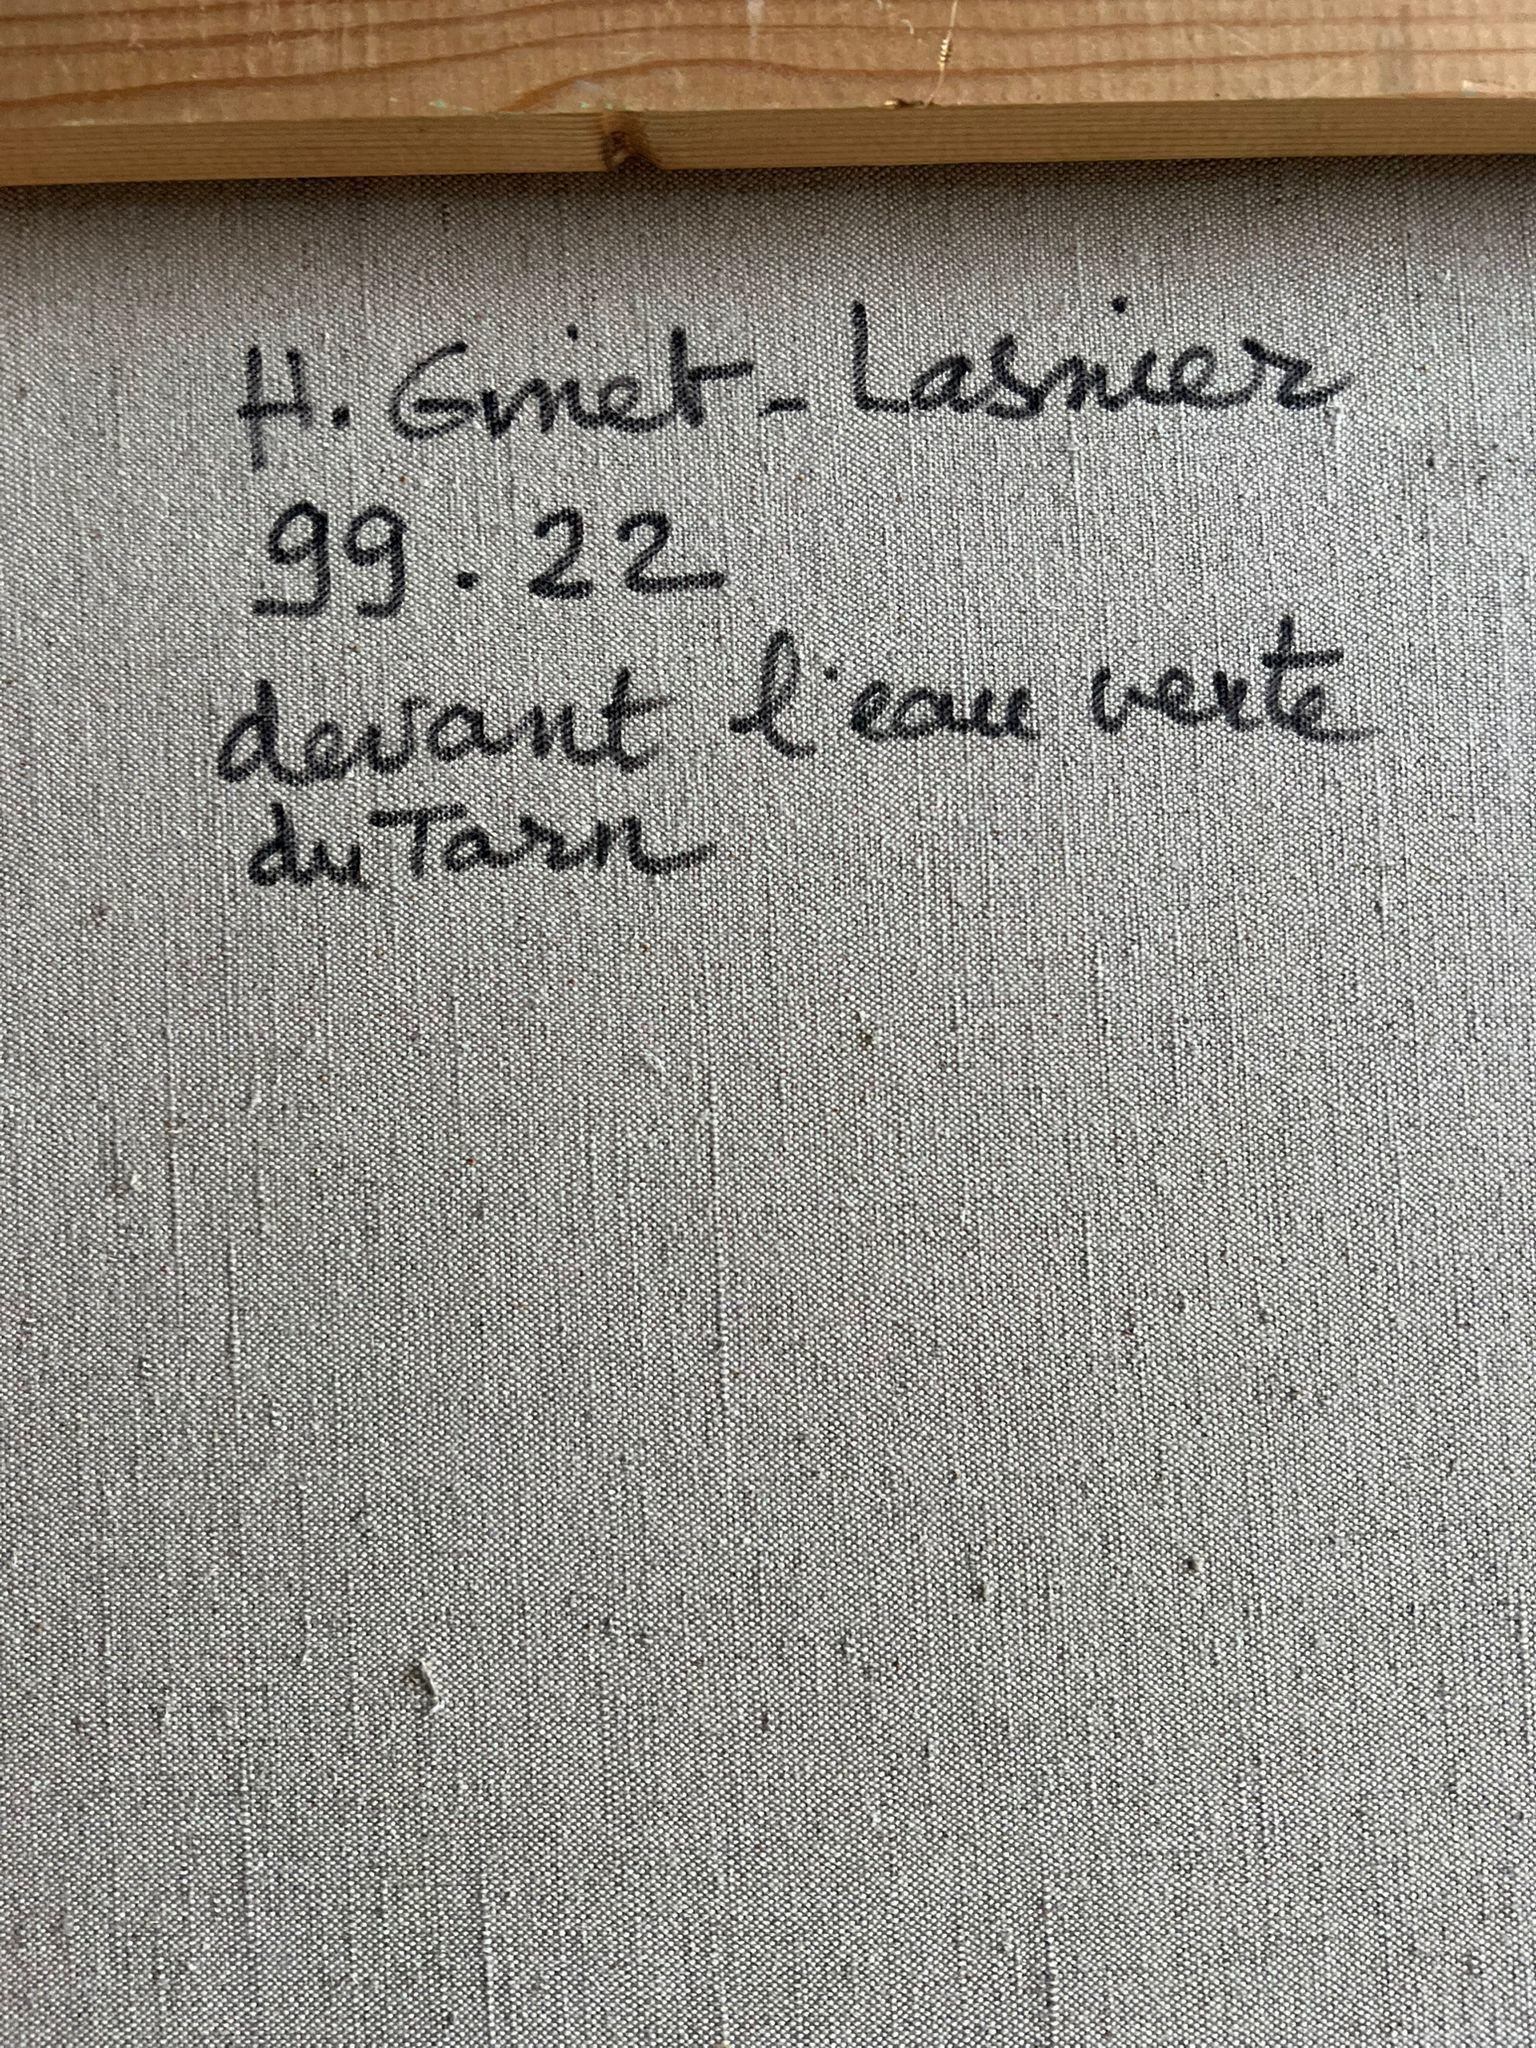 H. Griet - Lasnier
99.22
devant l'eau verte
du Tarn